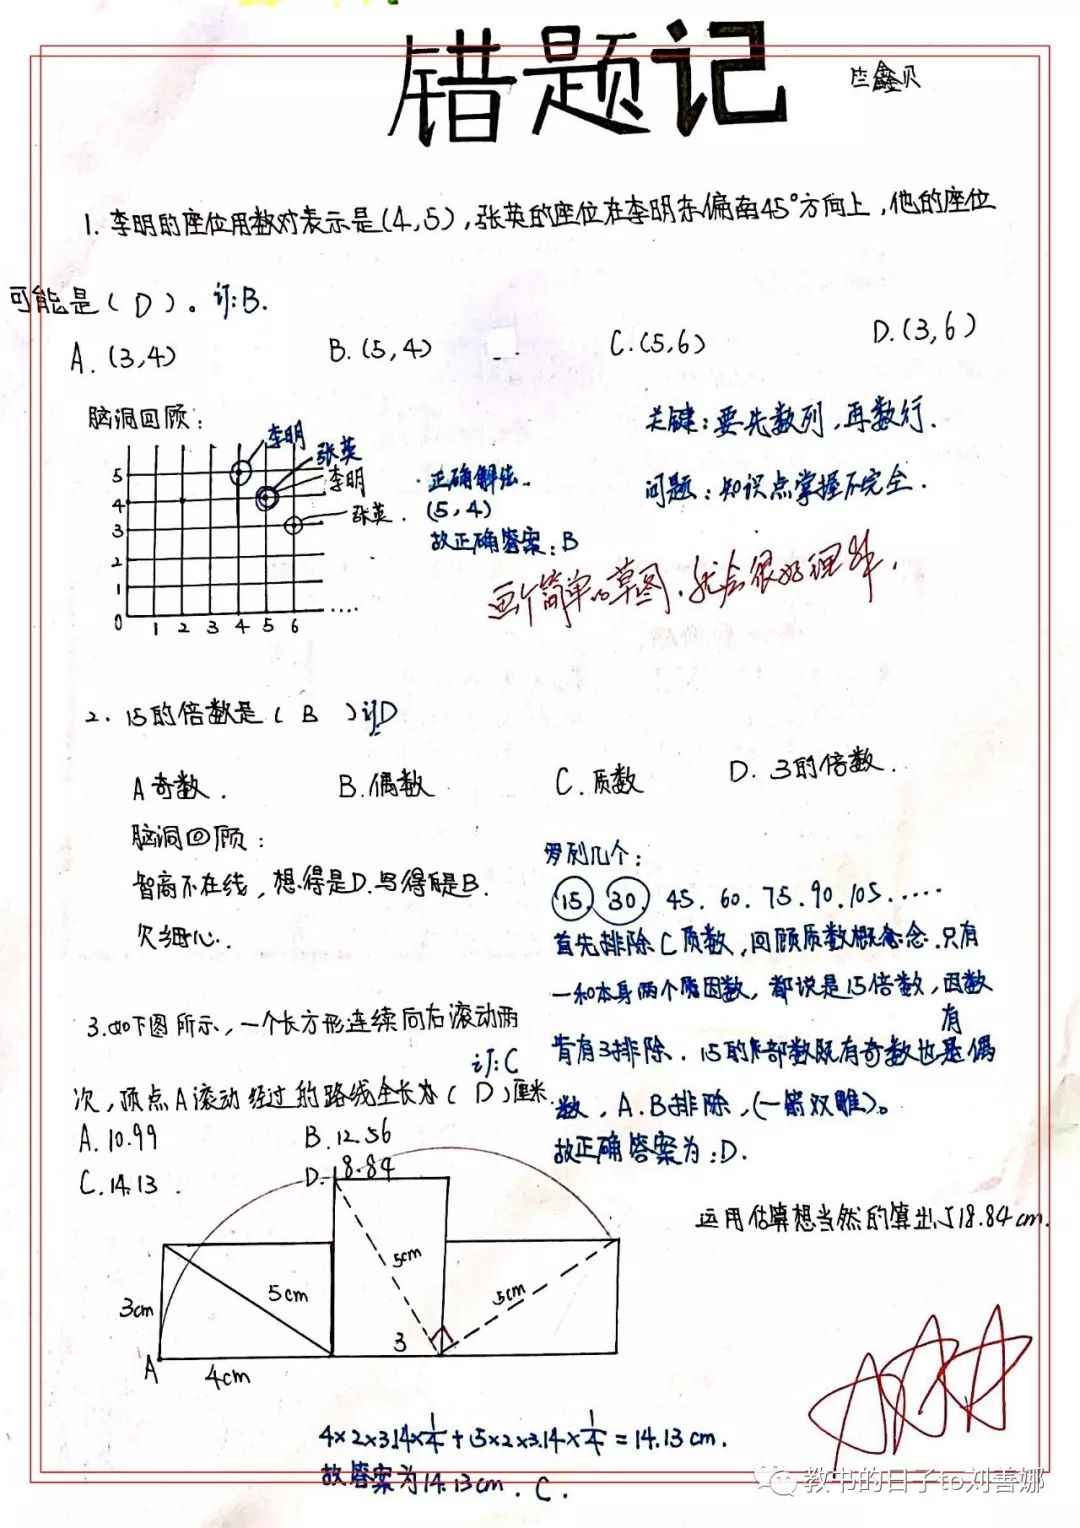 错题记
鑫贝
1. 李明的座位用数对表示是(4,5),张英的座位在李明东偏南45°方向上,他的座位
可能是( D )。订:B.
A. (3,4)
B. (5,4)
C. (5,6)
D. (3,6)
脑洞回顾:
李明
张英
李明
张英.
5
4
3
2
1
0 1 2 3 4 5 6
....
正确解法.
(5,4)
故正确答案:B
关键:要先数列,再数行.
问题:知识点掌握不完全.
画个简单的草图,就会很好理解.
2. 15的倍数是( B )订D
A 奇数.
B. 偶数
C. 质数
D. 3的倍数.
脑洞回顾:
智商不在线,想得是D.写得是B.
欠细心.
罗列几个:
15. 30. 45. 60. 75. 90. 105......
首先排除C质数,回顾质数概念,只有
一和本身两个因数,都说是15倍数,因数
肯有3排除. 15的倍数既有奇数也有偶
数,A.B排除,(一箭双雕)。
故正确答案为:D.
3.如下图所示,一个长方形连续向右滚动两
订:C
次,顶点A滚动经过的路线全长为( D )厘米.
A. 10.99
B. 12.56
C. 14.13.
D. 18.84
运用估算想当然的算出了18.84cm.
3cm
5cm
5cm
5cm
3
A
4cm
4×2×3.14×1/4+5×2×3.14×1/4=14.13cm.
故答案为14.13cm. C.
教书的日子to刘善娜